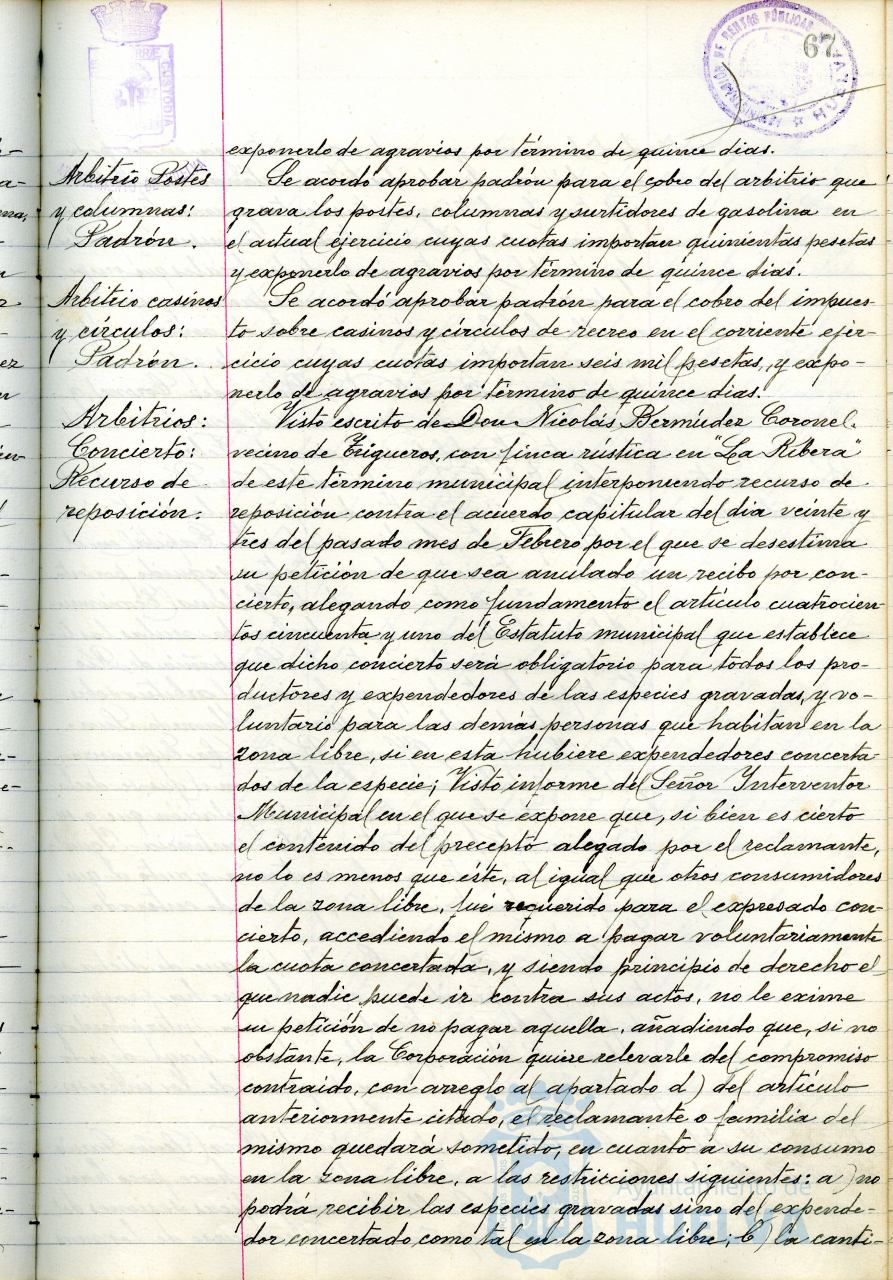 67
exponerlo de agravios por término de quince dias.
Arbitrio Postes
y columnas:
Padrón.
Se acordó aprobar padrón para el cobro del arbitrio que
grava los postes, columnas y surtidores de gasolina en
el actual ejercicio cuyas cuotas importan quinientas pesetas
y exponerlo de agravios por término de quince dias.
Arbitrio casinos
y círculos:
Padrón.
Se acordó aprobar padrón para el cobro del impues-
to sobre casinos y círculos de recreo en el corriente ejer-
cicio cuyas cuotas importan seis mil pesetas, y expo-
nerlo de agravios por término de quince dias.
Arbitrios:
Concierto:
Recurso de
reposición:
Visto escrito de Don Nicolás Bermúdez Coronel,
vecino de Trigueros, con finca rústica en "La Ribera"
de este término municipal interponiendo recurso de
reposición contra el acuerdo capitular del dia veinte y
tres del pasado mes de Febrero por el que se desestima
su petición de que sea anulado un recibo por con-
cierto, alegando como fundamento el artículo cuatrocien-
tos cincuenta y uno del Estatuto municipal que establece
que dicho concierto será obligatorio para todos los pro-
ductores y expendedores de las especies gravadas, y vo-
luntario para las demás personas que habitan en la
zona libre, si en esta hubiere expendedores concerta-
dos de la especie; Visto informe del Señor Interventor
Municipal en el que se expone que, si bien es cierto
el contenido del precepto alegado por el reclamante,
no lo es menos que éste, al igual que otros consumidores
de la zona libre, fué requerido para el expresado con-
cierto, accediendo el mismo a pagar voluntariamente
la cuota concertada, y siendo principio de derecho el
que nadie puede ir contra sus actos, no le exime
su petición de no pagar aquella, añadiendo que, si no
obstante, la Corporación quiere relevarle del compromiso
contraido, con arreglo al apartado d) del artículo
anteriormente citado, el reclamante o familia del
mismo quedará sometido, en cuanto a su consumo
en la zona libre, a las restricciones siguientes: a) no
podrá recibir las especies gravadas sino del expende-
dor concertado como tal en la zona libre; b) la canti-
Ayuntamiento de
HUELVA